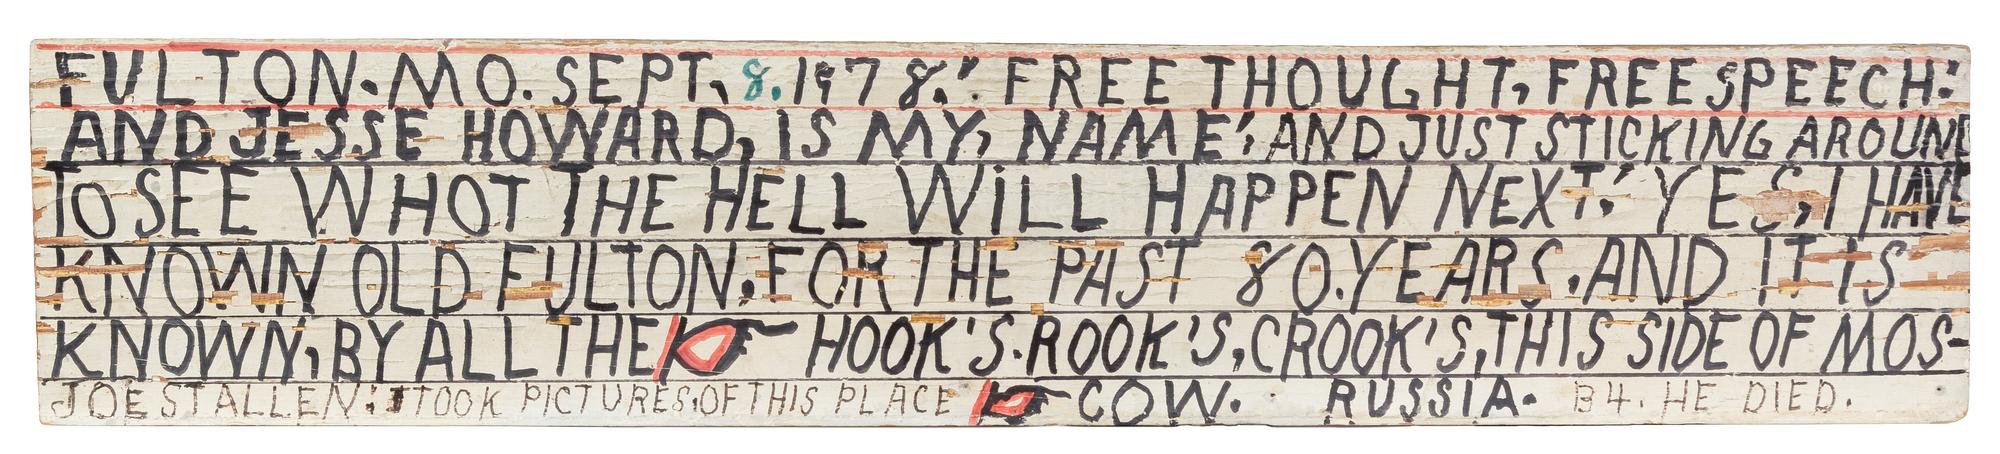 FULTON. MO. SEPT, 8. 1978." FREE THOUGHT, FREE SPEECH:'
AND JESSE HOWARD, IS MY, NAME' AND JUST STICKING AROUND
TO SEE WHOT THE HELL WiLL HAPPEN NEXT.' YES, I HAVE
KNOWN OLD FULTON, FOR THE PAST 80. YEARS. AND IT IS
KNOWN, BY ALL THE HOOK'S. ROOK'S, CROOK'S, THIS SIDE OF MOS-
JOE STALLEN: TOOK PICTURES OF THIS PLACE COW. RUSSIA. B4. HE DIED.